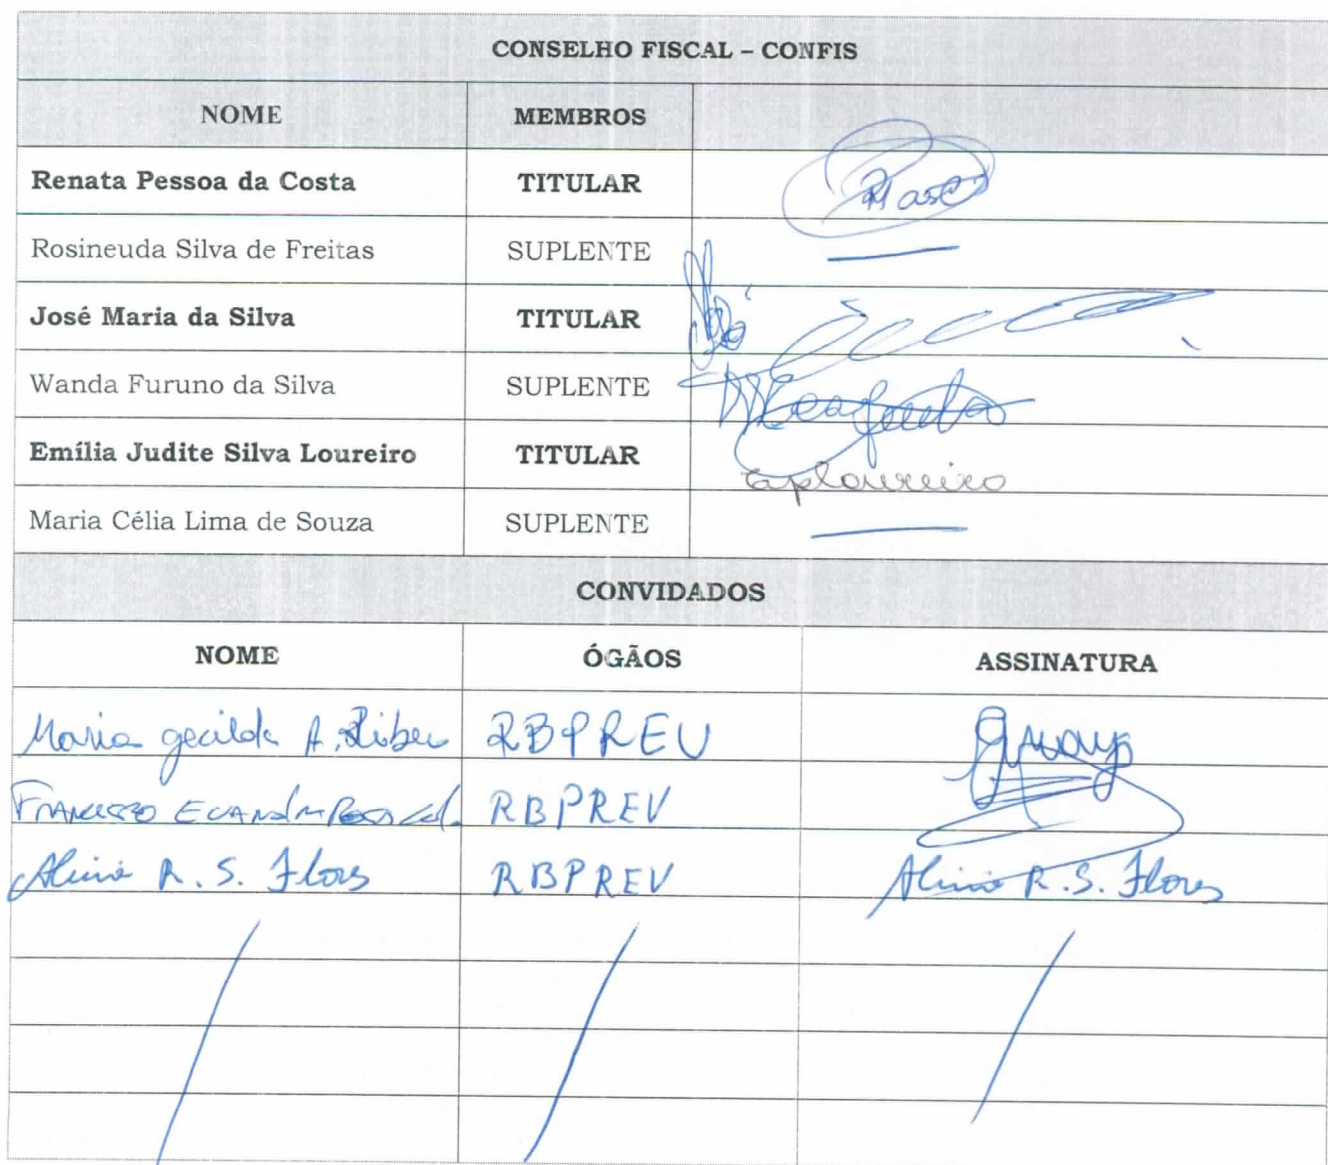 CONSELHO FISCAL – CONFIS
NOME MEMBROS
Renata Pessoa da Costa TITULAR
Rosineuda Silva de Freitas SUPLENTE
José Maria da Silva TITULAR
Wanda Furuno da Silva SUPLENTE
Emília Judite Silva Loureiro TITULAR
Maria Célia Lima de Souza SUPLENTE
CONVIDADOS
NOME ÓGÃOS ASSINATURA
Maria A. RBPREV
RBPREV
R. S. Flores RBPREV R. S. Flores